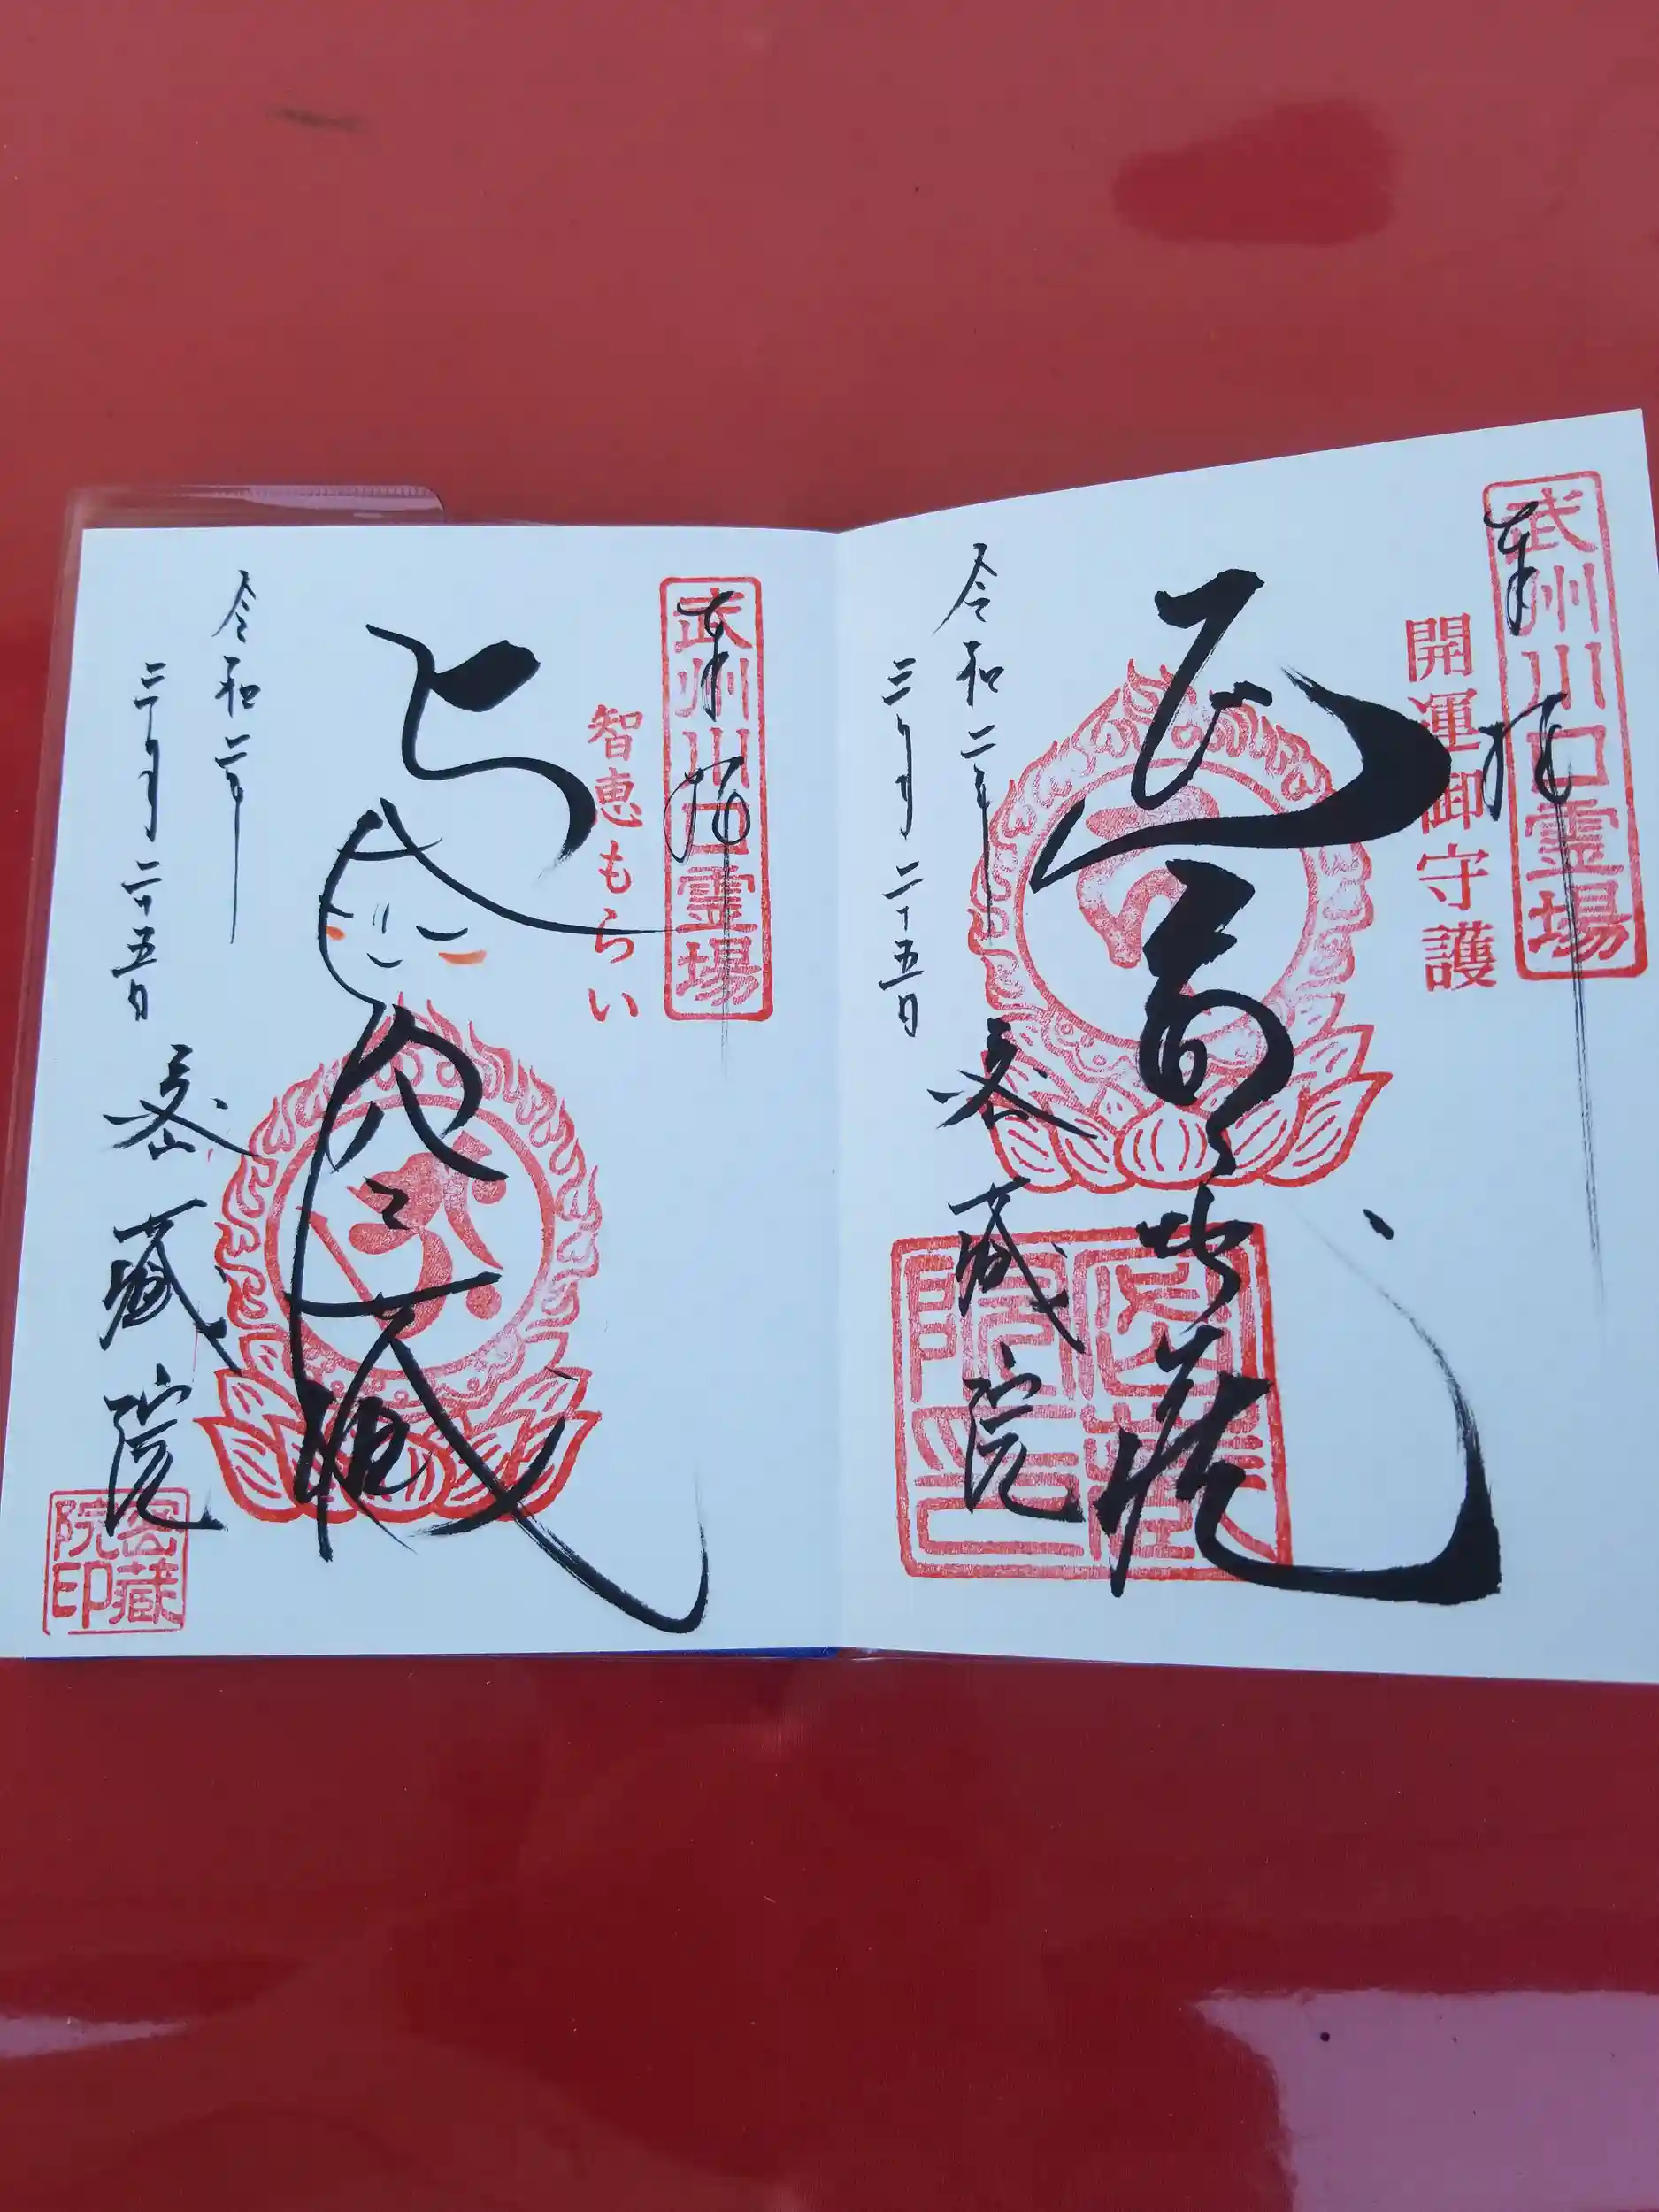 武州川口霊場
奉拝
開運御守護
令和二年
三月二十五日
密蔵院
密蔵院印
武州川口霊場
奉拝
智恵もらい
令和二年
三月二十五日
密蔵院
密蔵院印